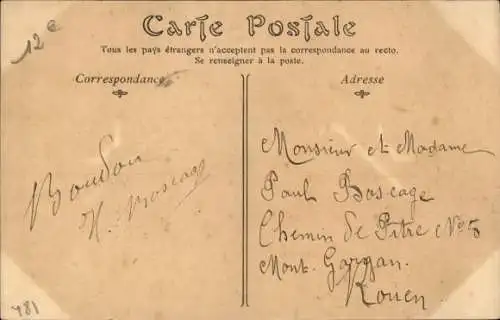 12e
Carte Postale
Tous les pays étrangers n'acceptent pas la correspondance au recto.
Se renseigner à la poste.
Correspondance
Adresse
H. Boscage
Monsieur et Madame
Paul Boscage
Chemin de Pitre No 5
Mont-Gargan.
Rouen
481